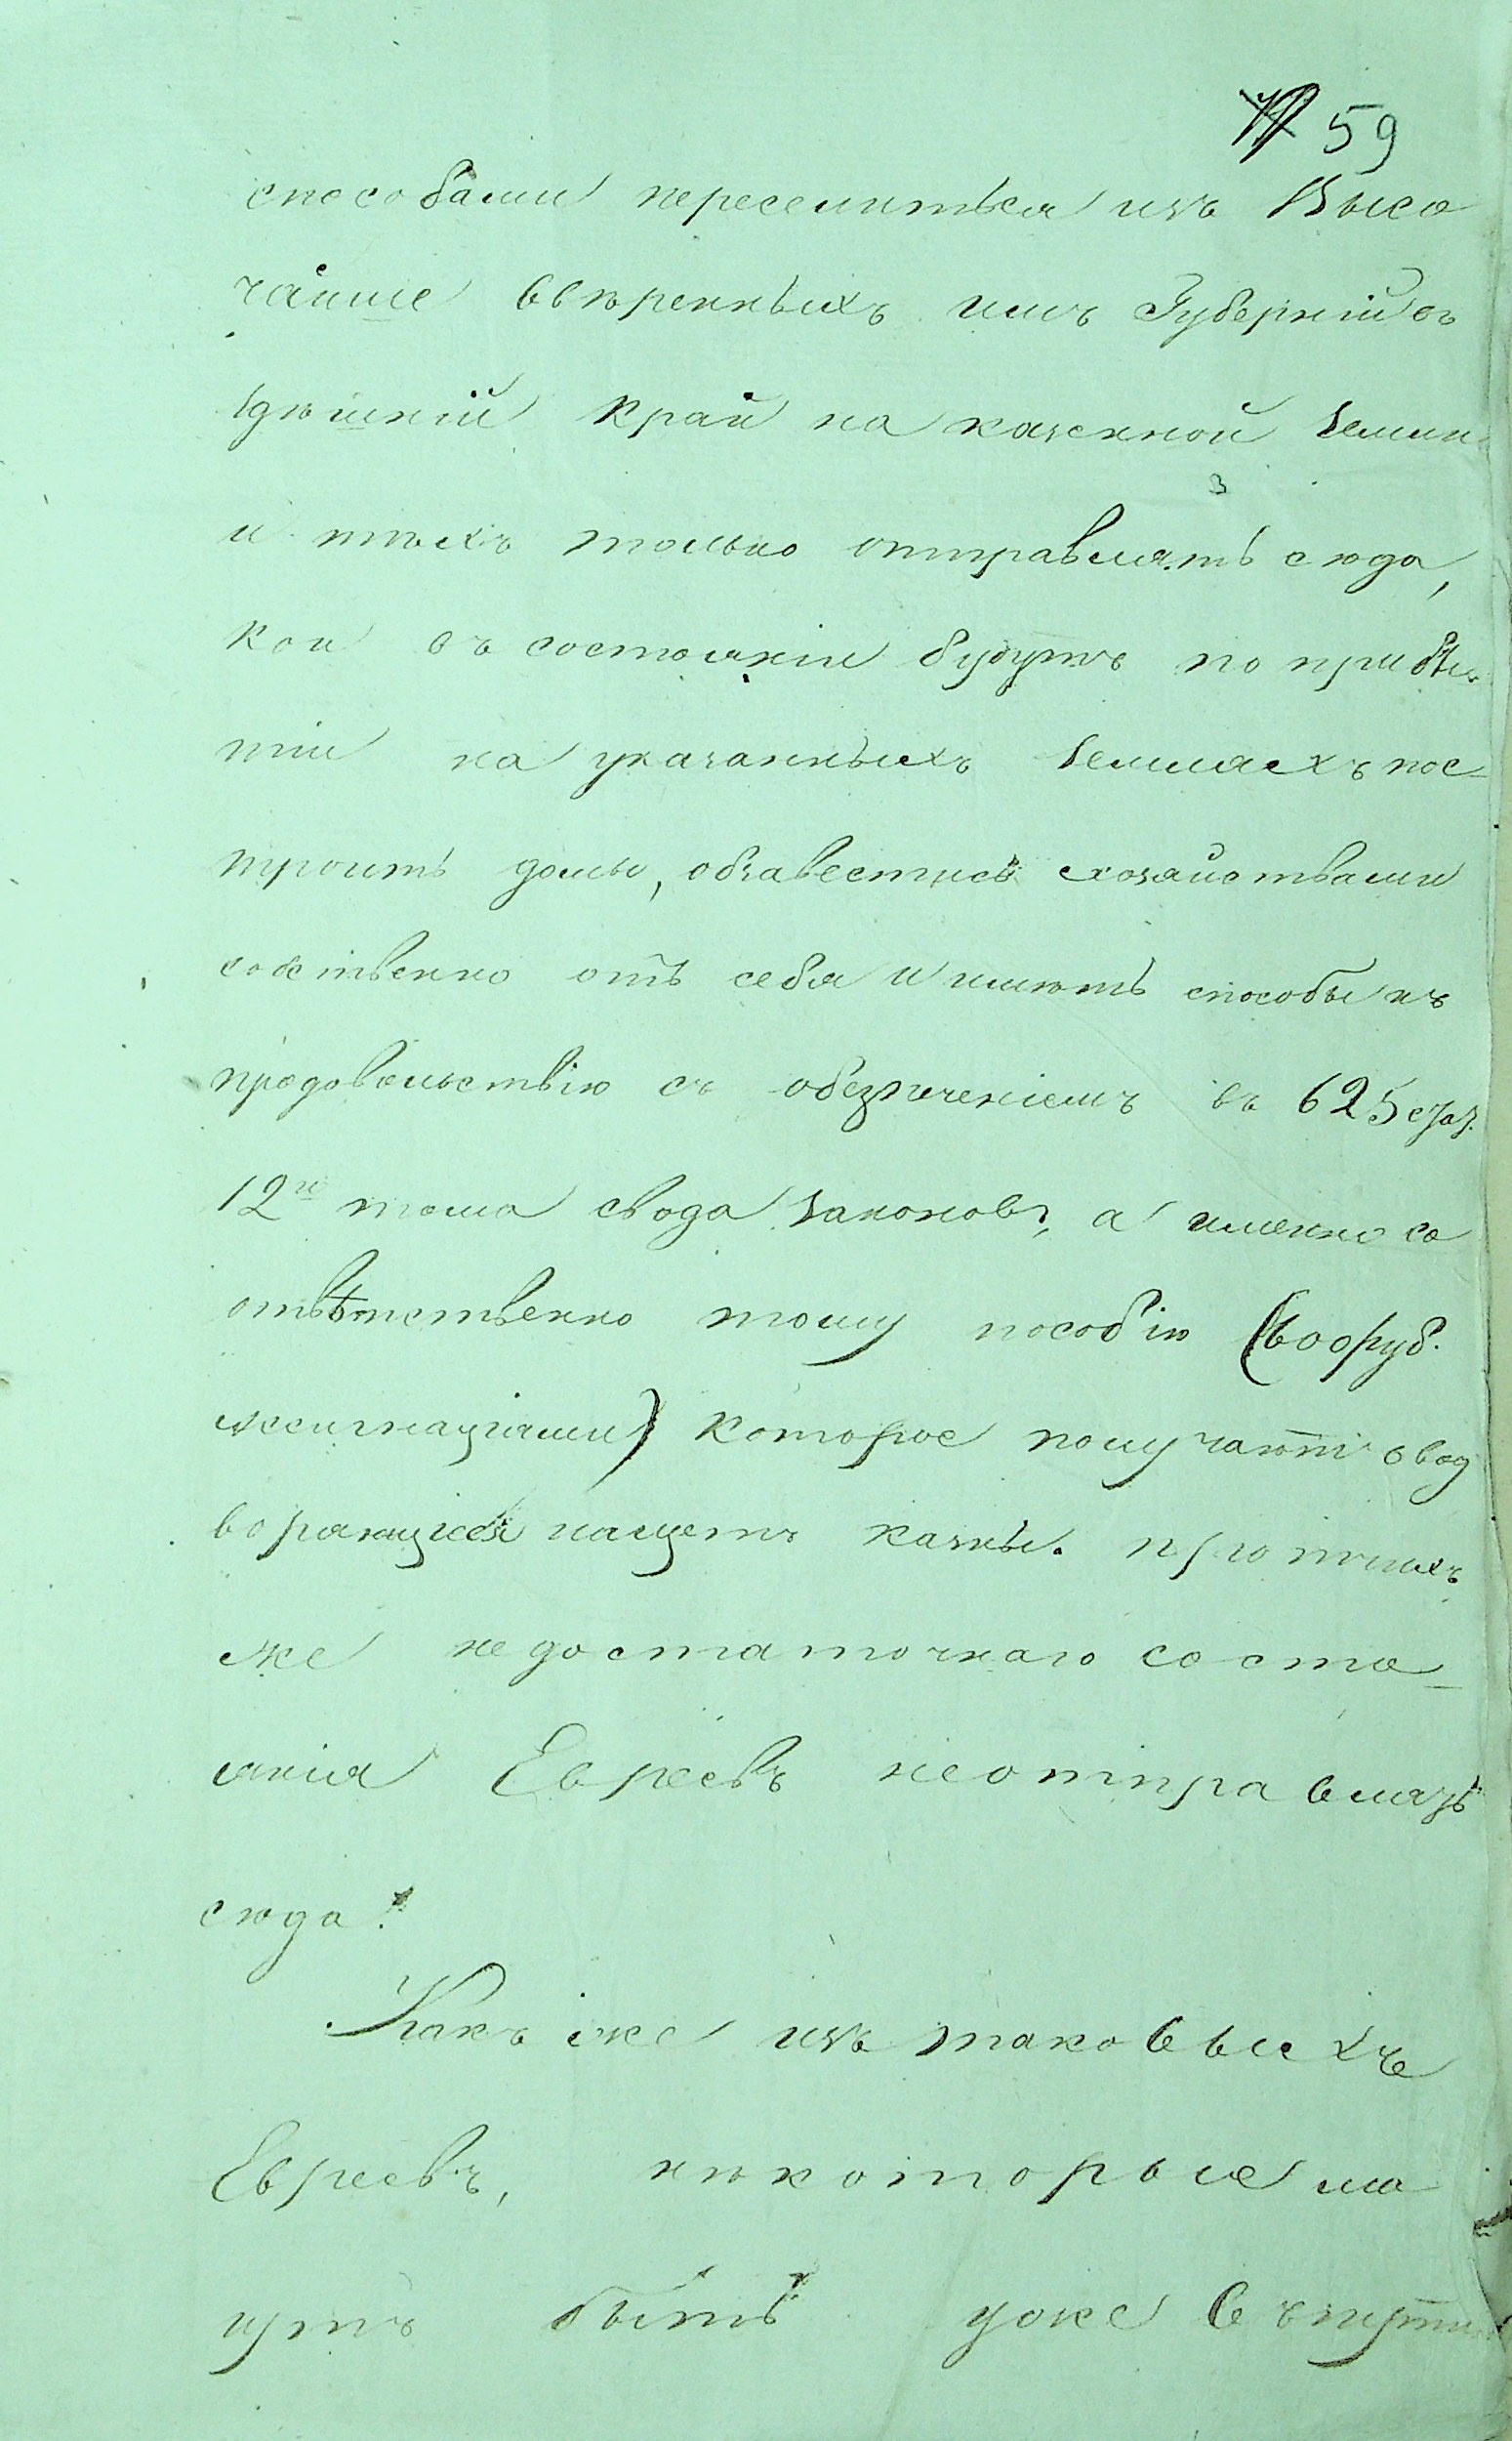 59
способами переселиться изъ Высо
чайше ввѣренныхъ имъ Губерній въ
здѣшній край на казенной земли
и тѣхъ только отправлять сюда,
кои въ состояніи будутъ по прибы
тіи на указанныхъ земляхъ пос-
троить домы, обзавестись хозяйствами
собственно отъ себя и имѣть способы къ
продовольствію съ обезпеченіемъ въ 625 стат.
12го тома свода законовъ, а именно со
отвѣтственно тому пособію (600 руб.
ассигнаціями) которое получаютъ вод
воряющіеся насчетъ казны. прочихъ
же недостаточнаго состо-
янія Евреевъ неотправлять
сюда.
Какъ же изъ таковыхъ
Евреевъ, некоторые мо
гутъ быть уже въ пути